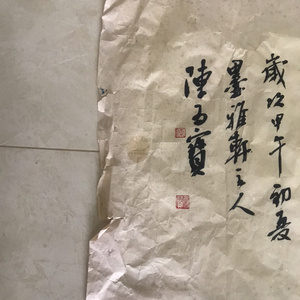 歲次甲午初夏
墨雅軒主人
陳五寶